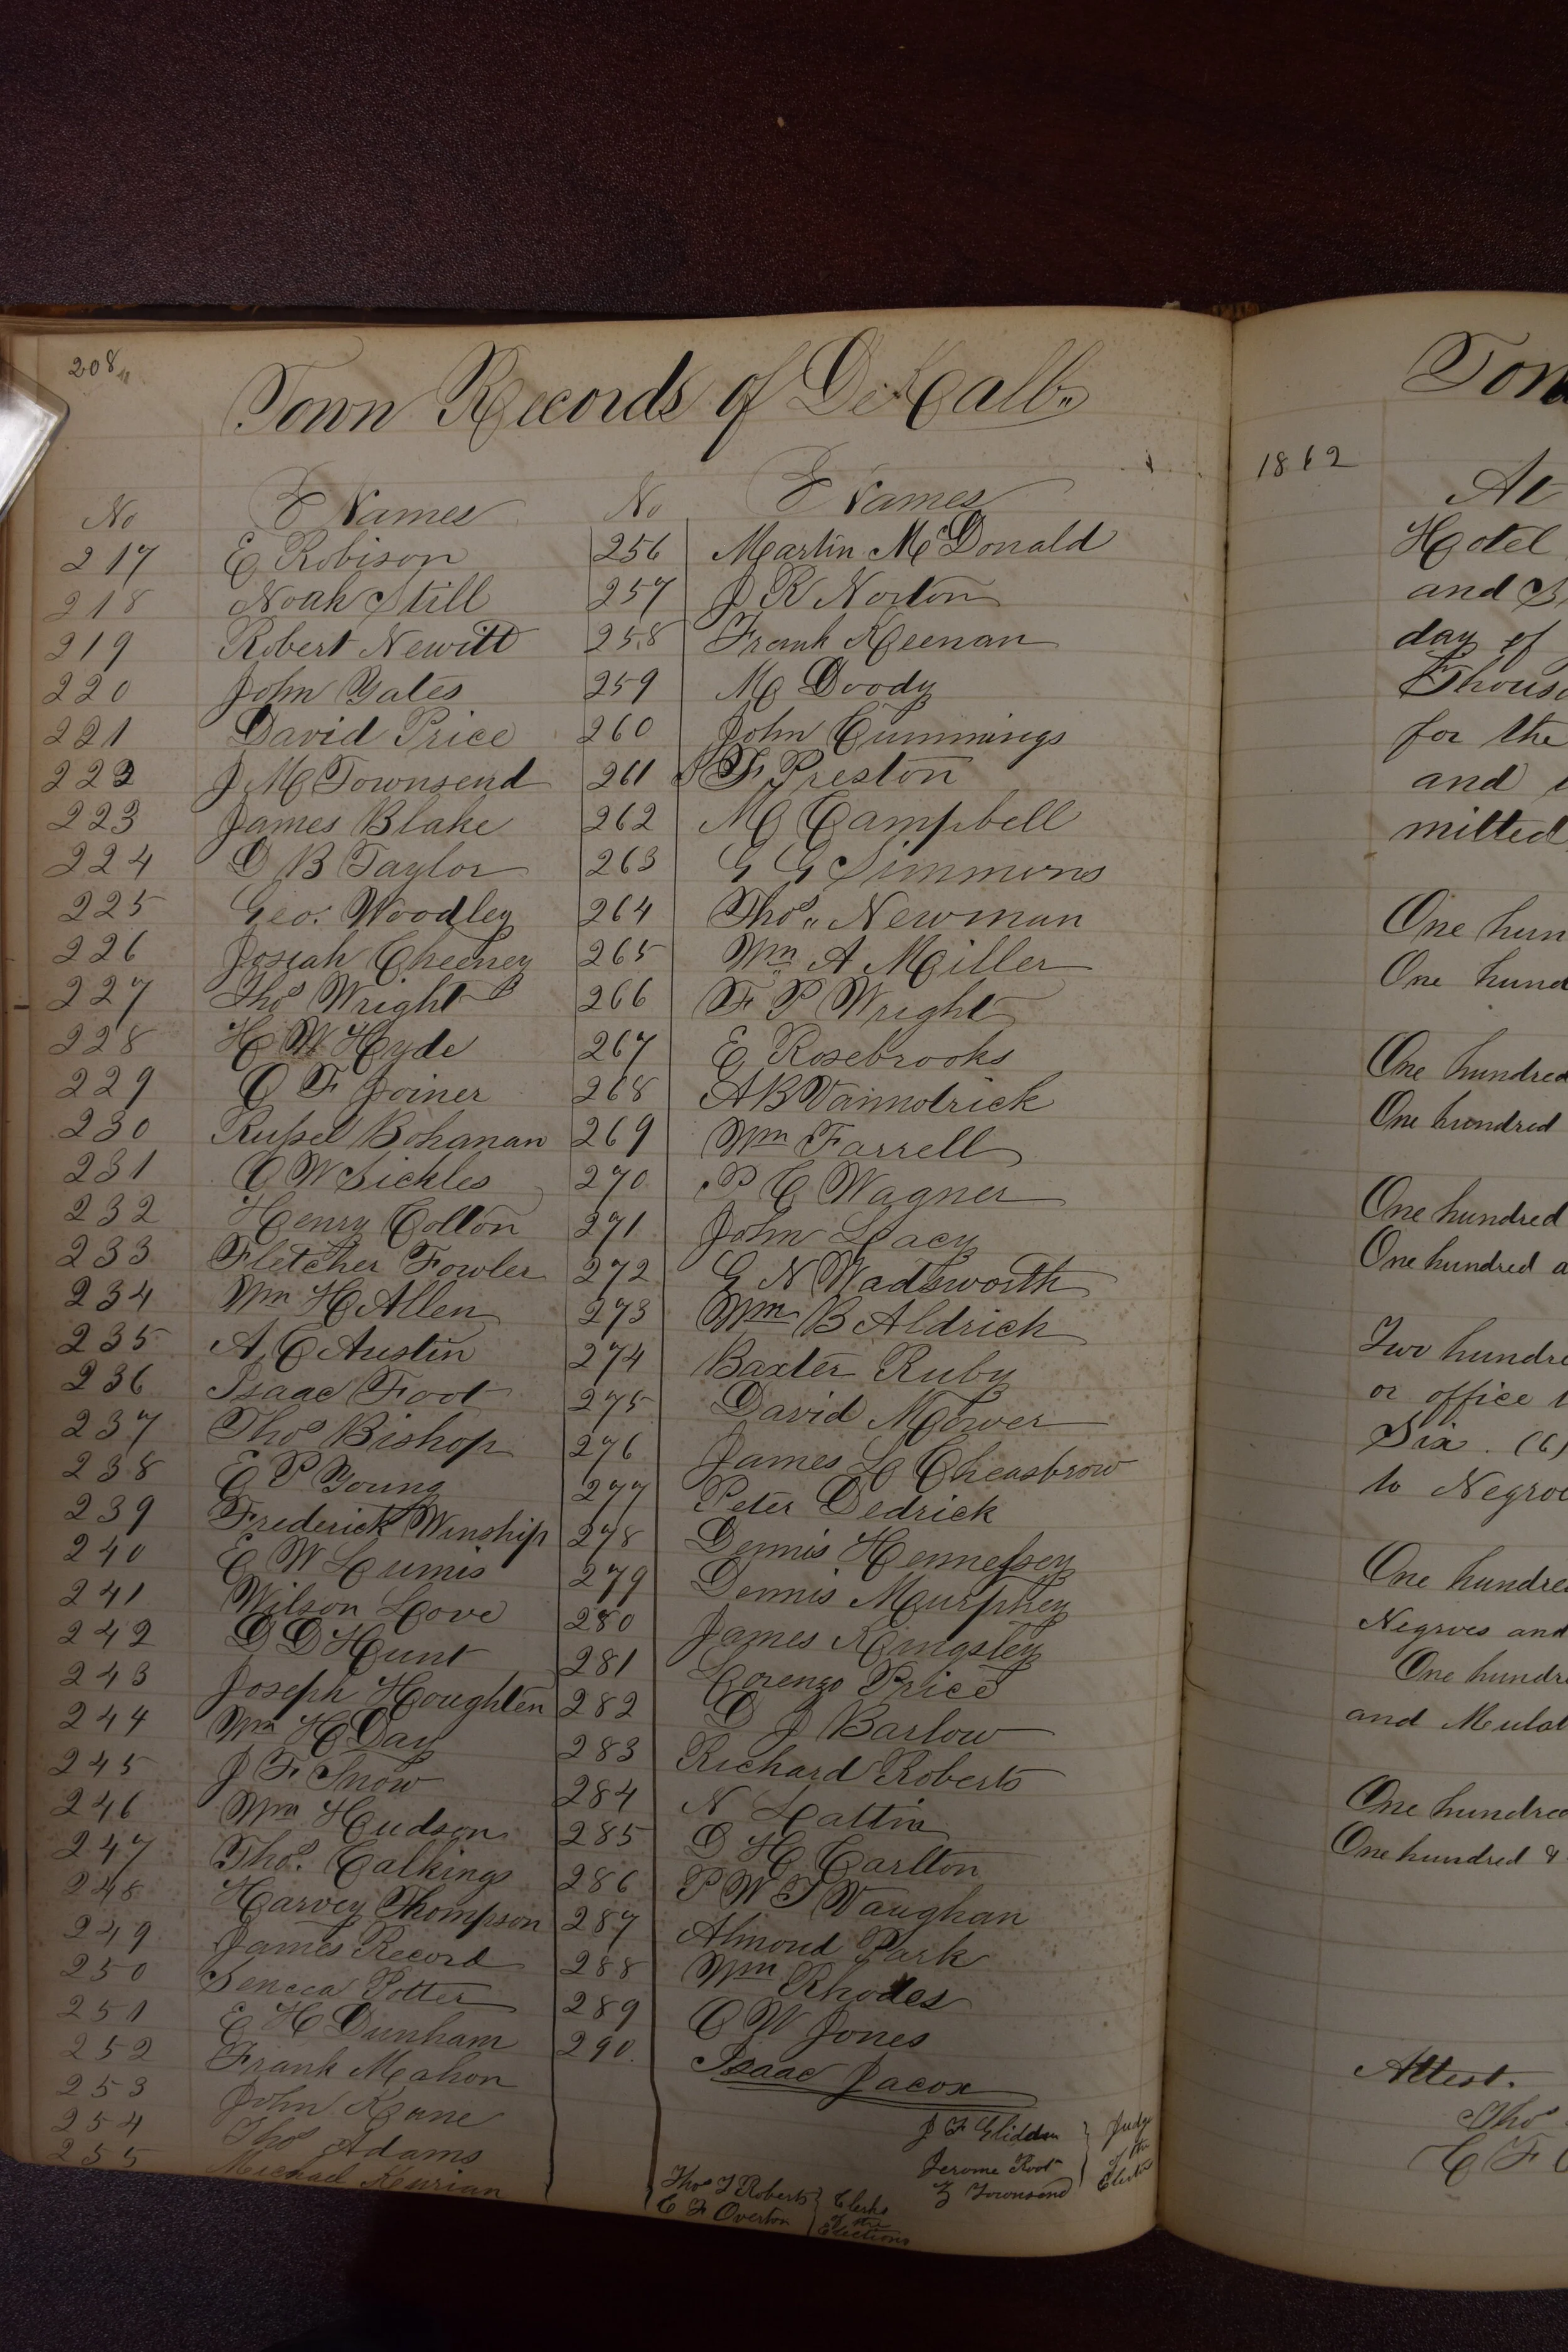 208
Town Records of DeKalb
No Names No Names
217 E Robison 256 Martin McDonald
218 Noah Still 257 J R Norton
219 Robert Newitt 258 Frank Keenan
220 John Yates 259 M Doody
221 David Price 260 John Cummings
222 J M Townsend 261 F Preston
223 James Blake 262 M Campbell
224 D B Taylor 263 G G Simmons
225 Geo. Woodley 264 Thos Newman
226 Josiah Cheeney 265 Wm A Miller
227 Thos Wright 266 F P Wright
228 H W Hyde 267 E Rosebrooks
229 O F Joiner 268 A B
230 Russel Bohanan 269 Wm Farrell
231 C W Sickles 270 P C Wagner
232 Henry Colton 271 John Lacy
233 Fletcher Fowler 272 G N Wadsworth
234 Wm H Allen 273 Wm B Aldrich
235 A C Austin 274 Baxter Ruby
236 Isaac Foot 275 David Mower
237 Thos Bishop 276 James L Cheasbrow
238 E P Young 277 Peter Dedrick
239 Frederick Winship 278 Dennis Hennessey
240 E W Lumis 279 Dennis Murphey
241 Wilson Love 280 James Kingsley
242 D D Hunt 281 Lorenzo Price
243 Joseph Houghten 282 D J Barlow
244 Wm H Day 283 Richard Roberts
245 J F Snow 284 N Lattin
246 Wm Hudson 285 D H Carlton
247 Thos. Calkings 286 P W Vaughan
248 Harvey Thompson 287 Almond Park
249 James Record 288 Wm Rhodes
250 Seneca Potter 289 C W Jones
251 E H Dunham 290 Isaac Jacox
252 Frank Mahon
253 John Kane
254 Thos Adams
255 Michael
J F Glidden
Jerome Root
Z Townsend
Judge of the
Thos J Roberts
C F Overton
Clerks of the Elections
1862
At
Hotel
and
day of
for the
and
One
One
One hundred
One hundred
One hundred
One hundred
Two
or office
Six. (6)
to
One
Negroes and
One
and
One
One hundred &
Attest.
Thos
C F